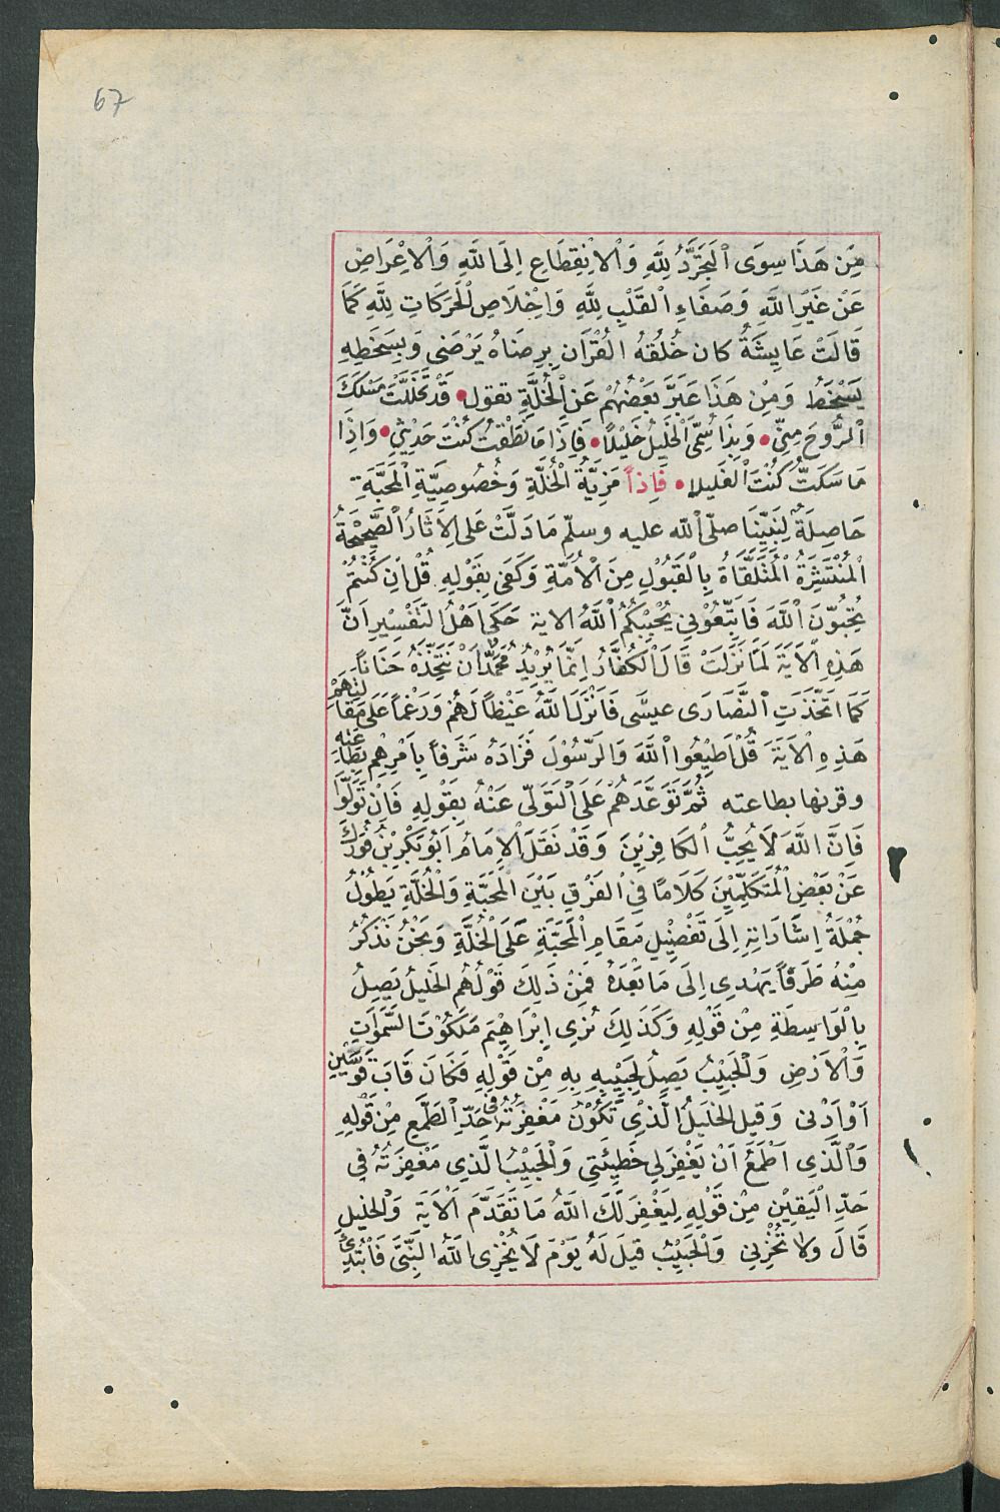 67
مِنْ هَذَا سِوَى اْلتَجَرُّدُ لِلَّهِ وَاْلاِنْقِطَاعِ اِلَى اللَّهِ وَاْلاِعْرَاضِ
عَنْ غَيْرِ اللَّهِ وَصَفَاءِ اْلقَلْبِ لِلَّهِ وَاِخْلَاصِ الْحَرَكَاتِ لِلَّهِ كَمَا
قَالَتْ عَايِشَةُ كان خُلُقهُ القُرْآنِ بِرِضَاهُ يَرْضَى وَبِسَخَطِهِ
يَسْخَطُ وَمِنْ هَذَا عَبَّرَ بَعْضُهُمْ عَنِ اْلخُلَّةِ بقول • قَدْ تَخَلَّلْتَ مَسْلَكَ
اْلرُّوحَ مِنِّي • وَبِذَا سُمِّيَ اْلخَلِيلُ خَلِيْلًا • فَاِذَا مَا نَطَقْتُ كُنْتَ حَدِيثِي • وَاِذَا
مَا سَكَتُّ كُنْتَ الْغَلِيلا • فَاِذاً مَزِيَّةُ اْلخُلَّةِ وَخُصُوصِيَّةِ اْلمَحَبَّةِ
حَاصِلَةٌ لِنَبِيِّنَا صلّى الله عليه وسلّم مَا دَلَّتْ عَلَى الآثَارُ الصَّحِيْحَةُ
اْلمُنْتَشِرَةُ اْلمُتَلَقَّاةُ بِاْلقَبُوْلِ مِنَ اْلاُمَّةِ وَكَفَى بِقَوْلِهِ قُلْ اِنْ كُنْتُمْ
تُحِبُّوْنَ اللَّهَ فَاتَّبِعُوْنِي يُحْبِبْكُمُ اللَّهُ الاية حَكَى اَهْلُ التَفْسِيْرِ اَنَّ
هَذِهِ اْلآيَةَ لَمَّا نَزَلَتْ قَالَ الْكُفَّارُ اِنَّمَا يُرِيْدُ مُحَمَّدٌ اَنْ نَتَّخِذَهُ حَنَاناً
كَمَا اتَّخَذَتِ النَّصَارَى عيسَى فَاَنْزَلَ اللَّهُ غَيْظاً لَهُمْ وَرَغْماً عَلَى مَقَالَتِهِمْ
هَذِهِ اْلآيَةَ قُلْ اَطِيْعُوا اللَّهَ وَالرَّسُوْلَ فَزَادَهُ شَرَفاً بِاَمْرِهِم بِطَاعَتِهِ
وقرنها بطاعته ثُمَّ تَوَعَّدَهُمْ عَلَى التَوَلِّي عَنْهُ بِقَوْلِهِ فَاِنْ تَوَلَّوْا
فَاِنَّ اللَّهَ لَا يُحِبُّ اْلكَافِرِيْنَ وَقَدْ نَقَلَ الْاِمَامُ اَبُو بَكْرِ بْنُ فُورَكَ
عَنْ بَعْضِ الْمُتَكَلِّمِيْنَ كَلَامًا فِي الْفَرْقِ بَيْنَ المَحَبَّةِ وَالْخُلَّةِ يَطُوْلُ
جُمْلَةُ اِشَارَاتِهِ اِلَى تَفْضِيْلِ مَقَامِ الْمَحَبَّةِ عَلَى الْخُلَّةِ وَنَحْنُ نَذْكُرُ
مِنْهُ طَرَفاً يَهْدِى اِلَى مَا بَعْدَهُ فَمِنْ ذَلِكَ قَوْلُهُم الخَلِيلُ يَصِلُ
بِالْوَاسِطَةِ مِنْ قَوْلِهِ وَكَذَلِكَ نُرِي اِبْرَاهِيْمَ مَلَكُوْتَ السَّمَوَاتِ
وَاْلاَرْضِ وَاْلحَبِيْبُ يَصِلُ لِحَبِيْبِهِ بِهِ مِنْ قَوْلِهِ فَكَانَ قَابَ قَوْسَيْنِ
اَوْ اَدْنى وَقيل الخَلِيلُ الَّذِى تَكُوْنُ مَغْفِرَتُهُ فِي حَدِّ الطَمَعِ مِنْ قَوْلِهِ
وَالَّذِى اَطْمَعُ اَنْ يَغْفِرَ لِي خَطِيْئَتِي وَالْحَبِيْبُ الَّذِي مَغْفِرَتُهُ فِي
حَدِّ الْيَقِيْنِ مِنْ قَوْلِهِ لِيَغْفِرَ لَكَ اللَّهُ مَا تَقَدَّمَ اَلْآيَةَ وَالْخَلِيل
قَالَ ولا تُخْزِنِي وَالْحَبِيْبُ قيلَ لَهُ يَوْمَ لَا يُخْزِى اللَّهُ النَّبِيَّ فَابْتُدِئَ